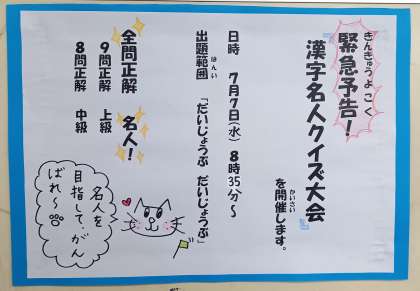 きんきゅうよこく
緊急予告！
漢字名人クイズ大会
かいさい
を開催します。
日時　7月7日(水)　8時35分～
はんい
出題範囲　「だいじょうぶ　だいじょうぶ」
全問正解　名人！
9問正解　上級
8問正解　中級
名人を
目指して、がん
ばれ～